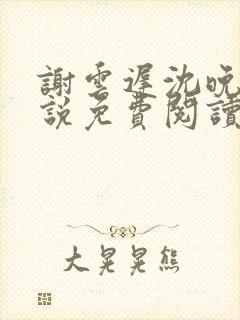 謝雲遲沈晚
說免費閱讀
大晃晃熊